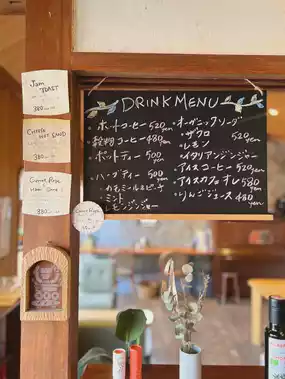 Jam
TOAST
380
CHEESE HOT SAND
380
380
DRINK MENU
・ホットコーヒー 520yen
・穀物コーヒー 480yen
・ポットティー 500yen
・ハーブティー 500yen
カモミール&ピーチ
ミント
レモンジンジャー
・オーガニックソーダ
・ザクロ 520yen
・レモン
・イタリアンジンジャー
・アイスコーヒー 520yen
・アイスカフェオレ 580yen
・りんごジュース 480yen